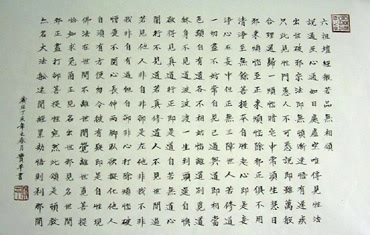 六祖壇經般若品無相頌
說通及心通如日處虛空唯傳見性法
出世破邪宗法即無頓漸迷悟有遲疾
只此見性門愚人不可悉說即雖萬般
合理還歸一煩惱暗宅中常須生慧日
邪來煩惱至正來煩惱除邪正俱不用
清淨至無餘菩提本自性起心即是妄
淨心在妄中但正無三障世人若修道
一切盡不妨常自見己過與道即相當
色類自有道各不相妨惱離道別覓道
終身不見道波波度一生到頭還自懊
欲得見真道行正即是道自若無道心
闇行不見道若真修道人不見世間過
若見他人非自非却是左他非我不非
我非自有過但自却非心打除煩惱破
憎愛不關心長伸兩腳臥欲擬化他人
自須有方便勿令彼有疑即是自性現
佛法在世間不離世間覺離世覓菩提
恰如求兔角正見名出世邪見名世間
邪正盡打却菩提性宛然此頌是頓教
亦名大法船迷聞經累劫悟則剎那間
丁亥年春月平書